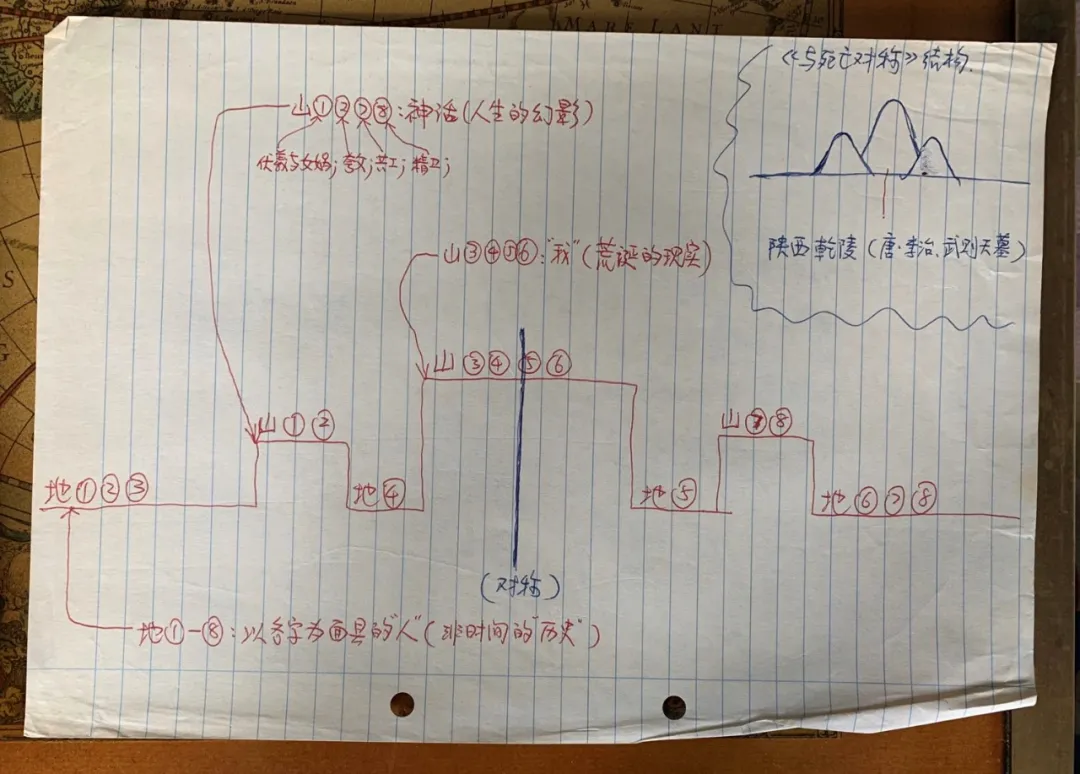 《与死亡对称》结构.
陕西乾陵(唐·李治、武则天墓)
山①②⑦⑧:神话(人生的幻影)
伏羲与女娲;夸父;共工;精卫;
山③④⑤⑥:"我"(荒诞的现实)
山③④⑤⑥
山①②
山⑦⑧
地①②③
地④
地⑤
地⑥⑦⑧
(对称)
地①—⑧:以名字为面具的"人"(非时间的"历史")